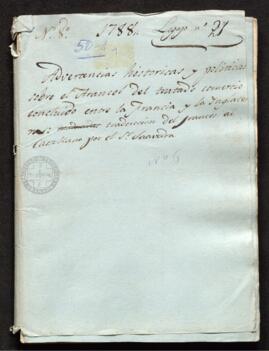 Nº 8º 1788. Legajo nº 21
50
Advertancias historicas y politicas
sobre el Arancel del tratado comercio
concluido entre la Francia y la Inglater
ra: traduccion del frances al
Castellano por el Sr Saavedra
Nº 6